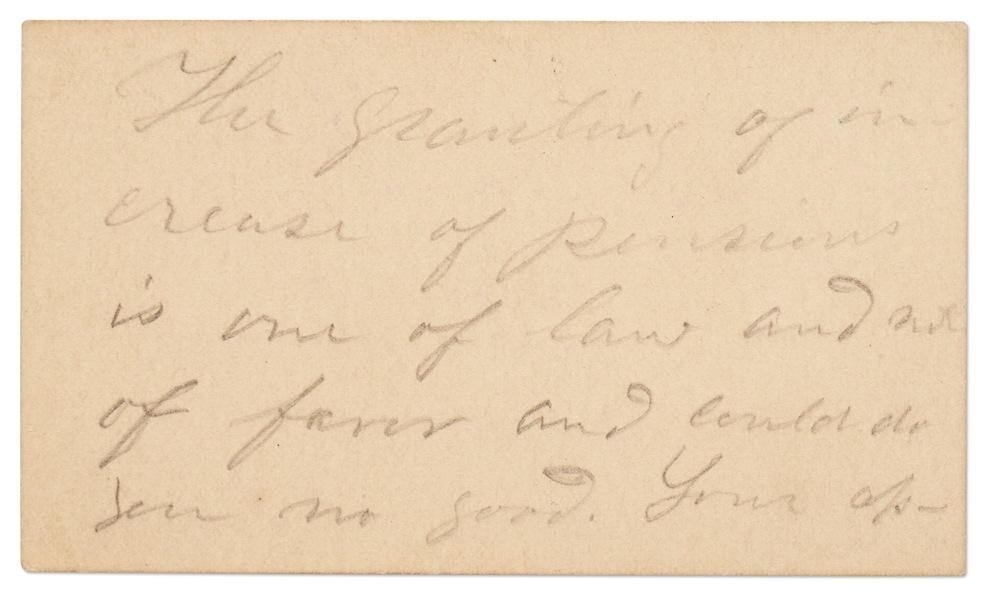 The granting of in-
crease of pensions
is one of law and not
of favor and could do
you no good. Your ap-